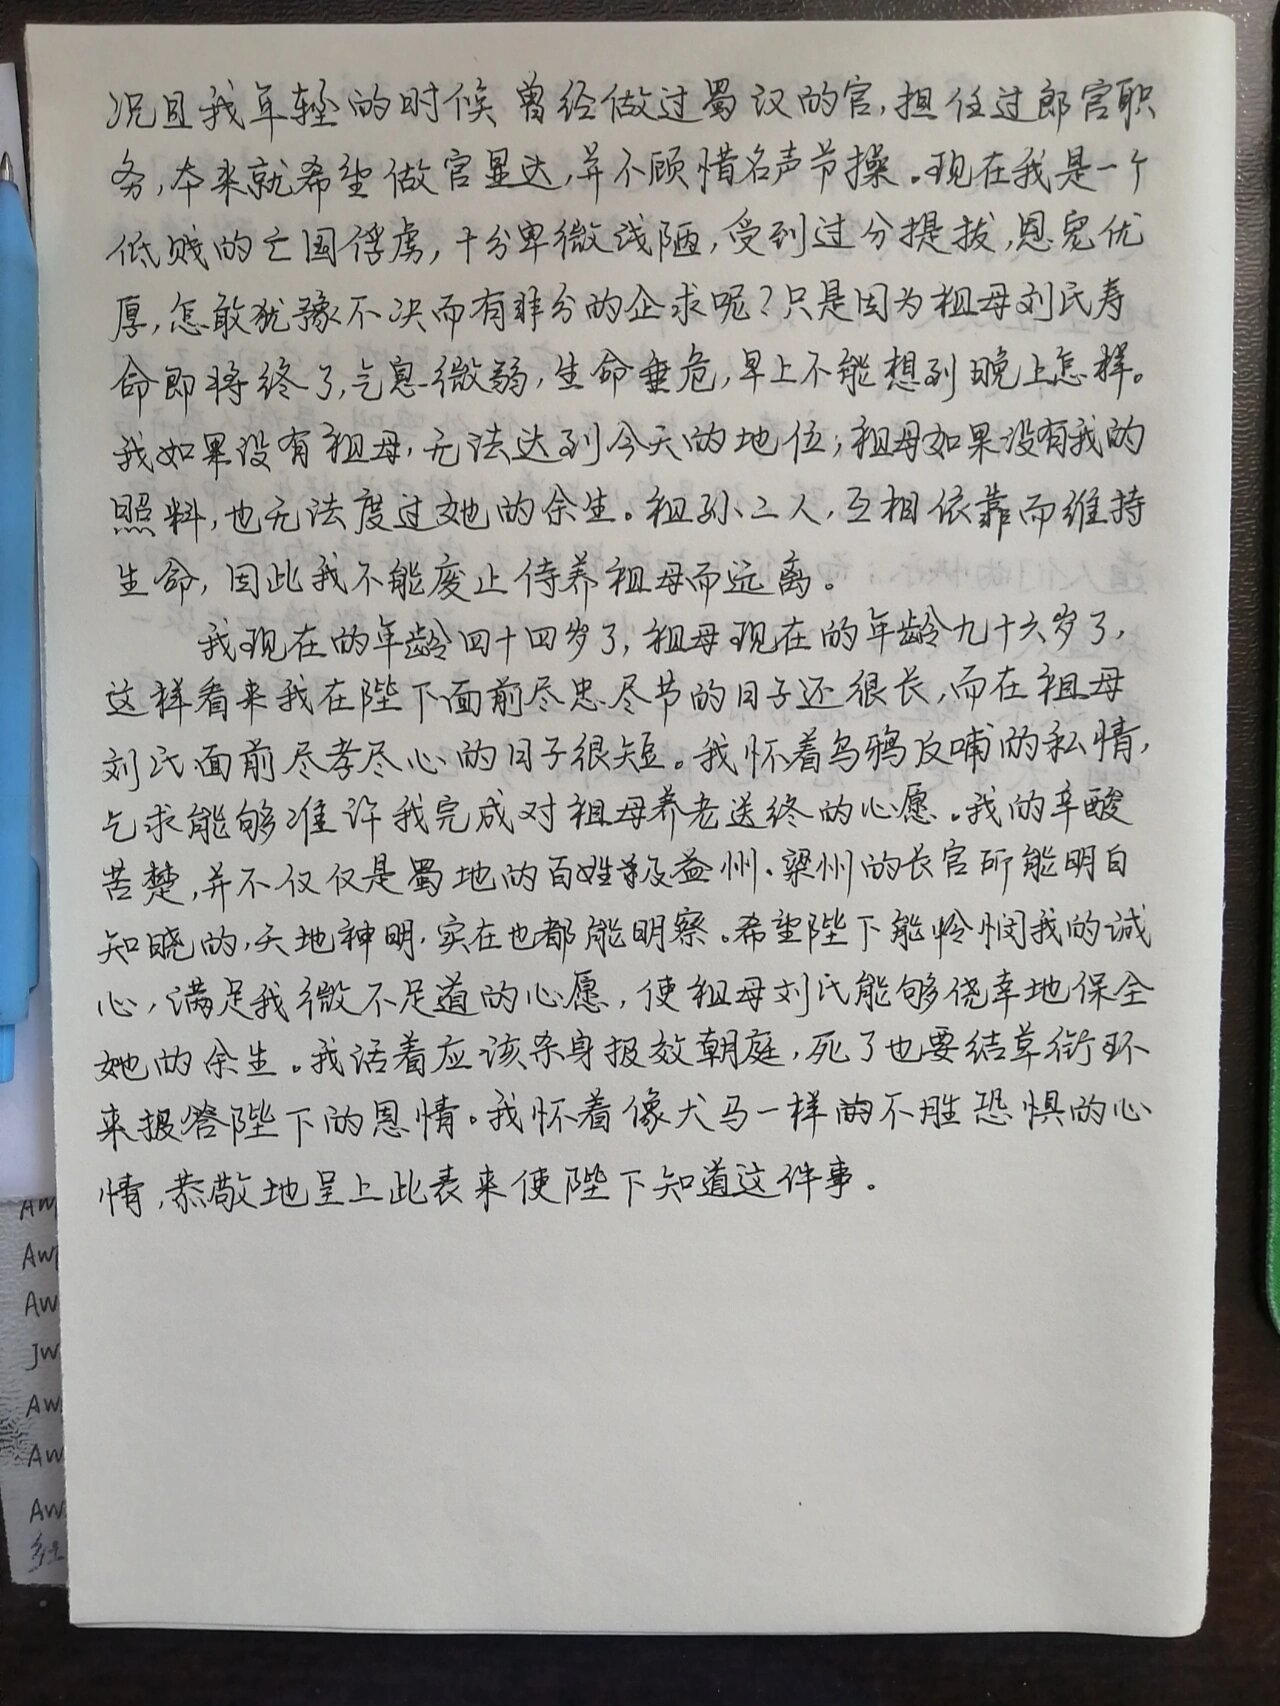 况且我年轻的时候曾经做过蜀汉的官,担任过郎官职
务,本来就希望做官显达,并不顾惜名声节操。现在我是一个
低贱的亡国俘虏,十分卑微浅陋,受到过分提拔,恩宠优
厚,怎敢犹豫不决而有非分的企求呢?只是因为祖母刘氏寿
命即将终了,气息微弱,生命垂危,早上不能想到晚上怎样。
我如果没有祖母,无法达到今天的地位;祖母如果没有我的
照料,也无法度过她的余生。祖孙二人,互相依靠而维持
生命,因此我不能废止侍养祖母而远离。
我现在的年龄四十四岁了,祖母现在的年龄九十六岁了,
这样看来我在陛下面前尽忠尽节的日子还很长,而在祖母
刘氏面前尽孝尽心的日子很短。我怀着乌鸦反哺的私情,
乞求能够准许我完成对祖母养老送终的心愿。我的辛酸
苦楚,并不仅仅是蜀地的百姓及益州、梁州的长官所能明白
知晓的,天地神明,实在也都能明察。希望陛下能怜悯我的诚
心,满足我微不足道的心愿,使祖母刘氏能够侥幸地保全
她的余生。我活着应该杀身报效朝庭,死了也要结草衔环
来报答陛下的恩情。我怀着像犬马一样的不胜恐惧的心
情,恭敬地呈上此表来使陛下知道这件事。
Aw
Aw
Aw
Jw
Aw
Aw
Aw